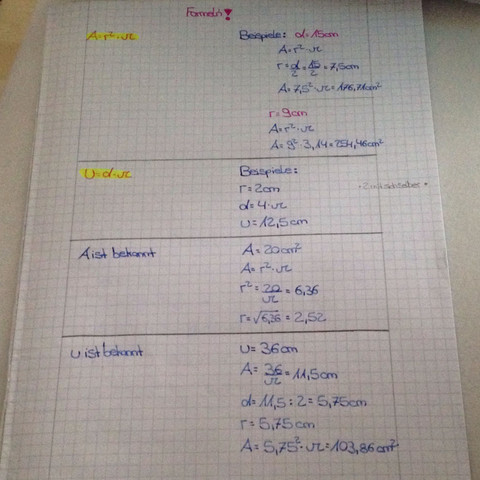 Formeln!
A=r²·π
Beispiele: d=15cm
A=r²·π
r=d/2=15/2=7,5cm
A=7,5²·π=176,71cm²
r=9cm
A=r²·π
A=9²·3,14=254,46cm²
U=d·π
Beispiele:
r=2cm
d=4·π
u=12,5cm
A ist bekannt
A=20cm²
A=r²·π
r²=20/π=6,36
r=√6,36=2,52
u ist bekannt
U=36cm
A=36/π=11,5cm
d=11,5:2=5,75cm
r=5,75cm
A=5,75²·π=103,86cm²